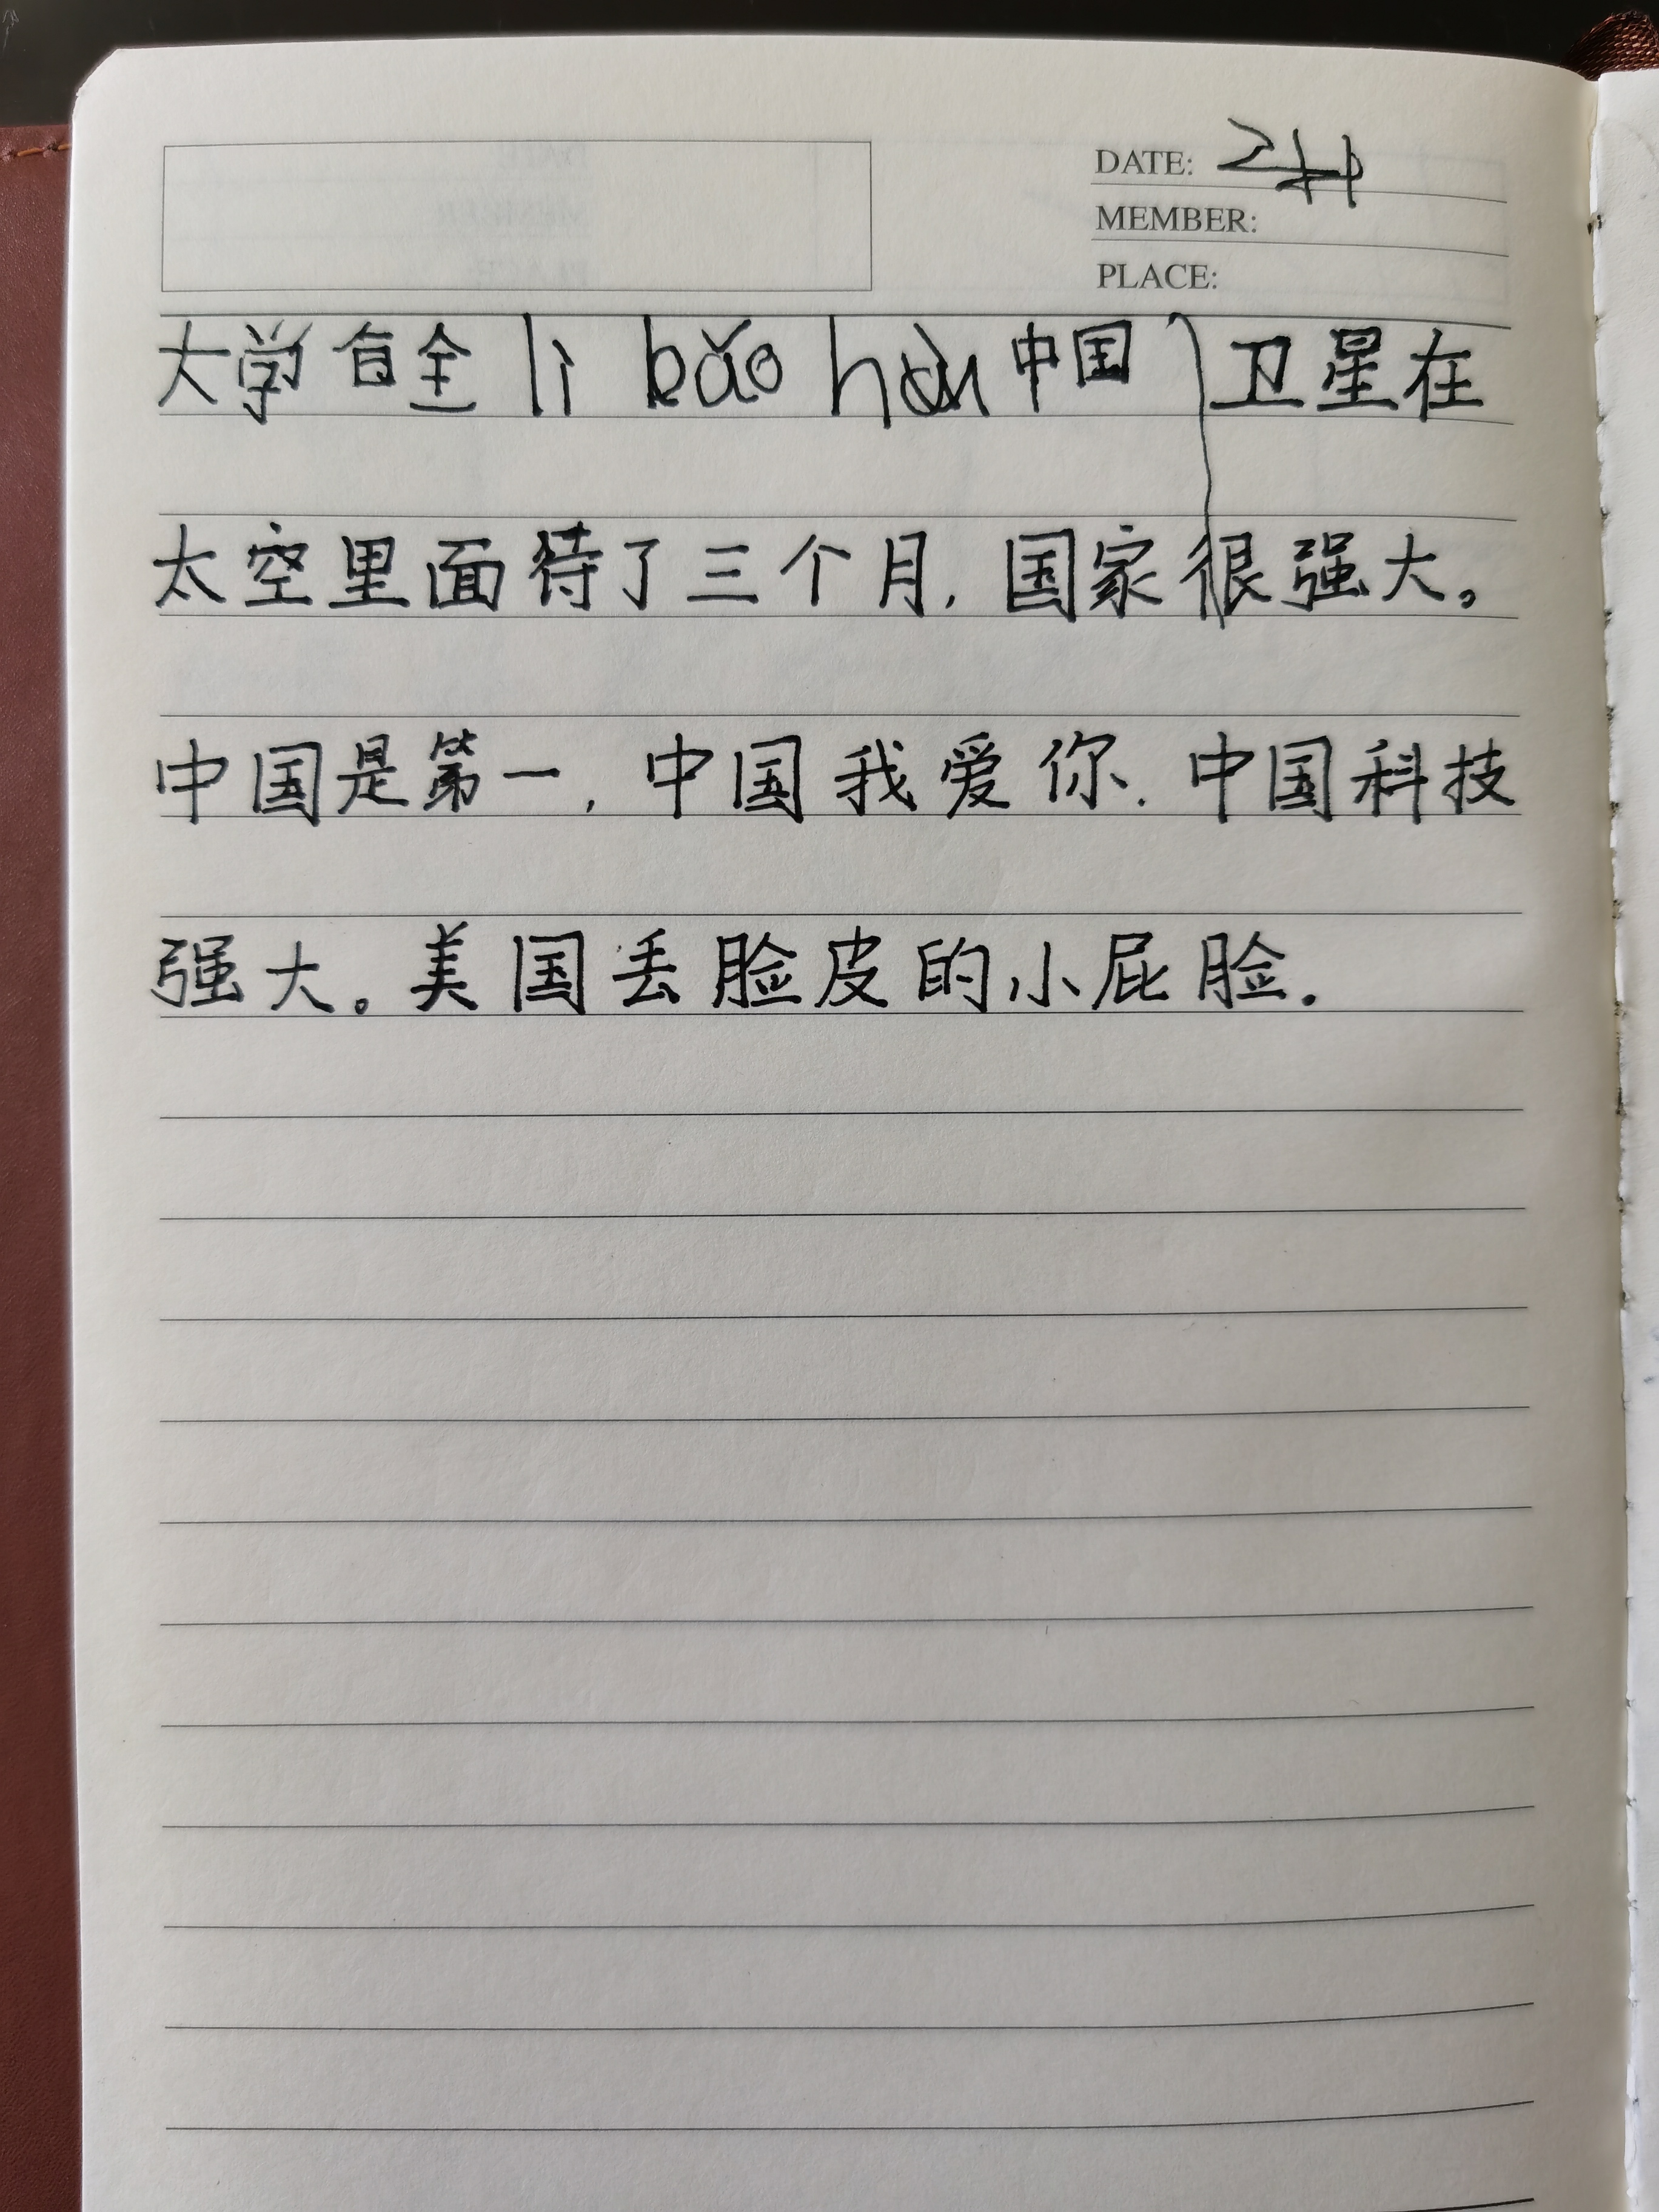 DATE:
MEMBER:
PLACE:
大学 全 li bǎo 中国 卫星在
太空里面待了三个月，国家很强大。
中国是第一，中国我爱你．中国科技
强大。美国丢脸皮的小屁脸．